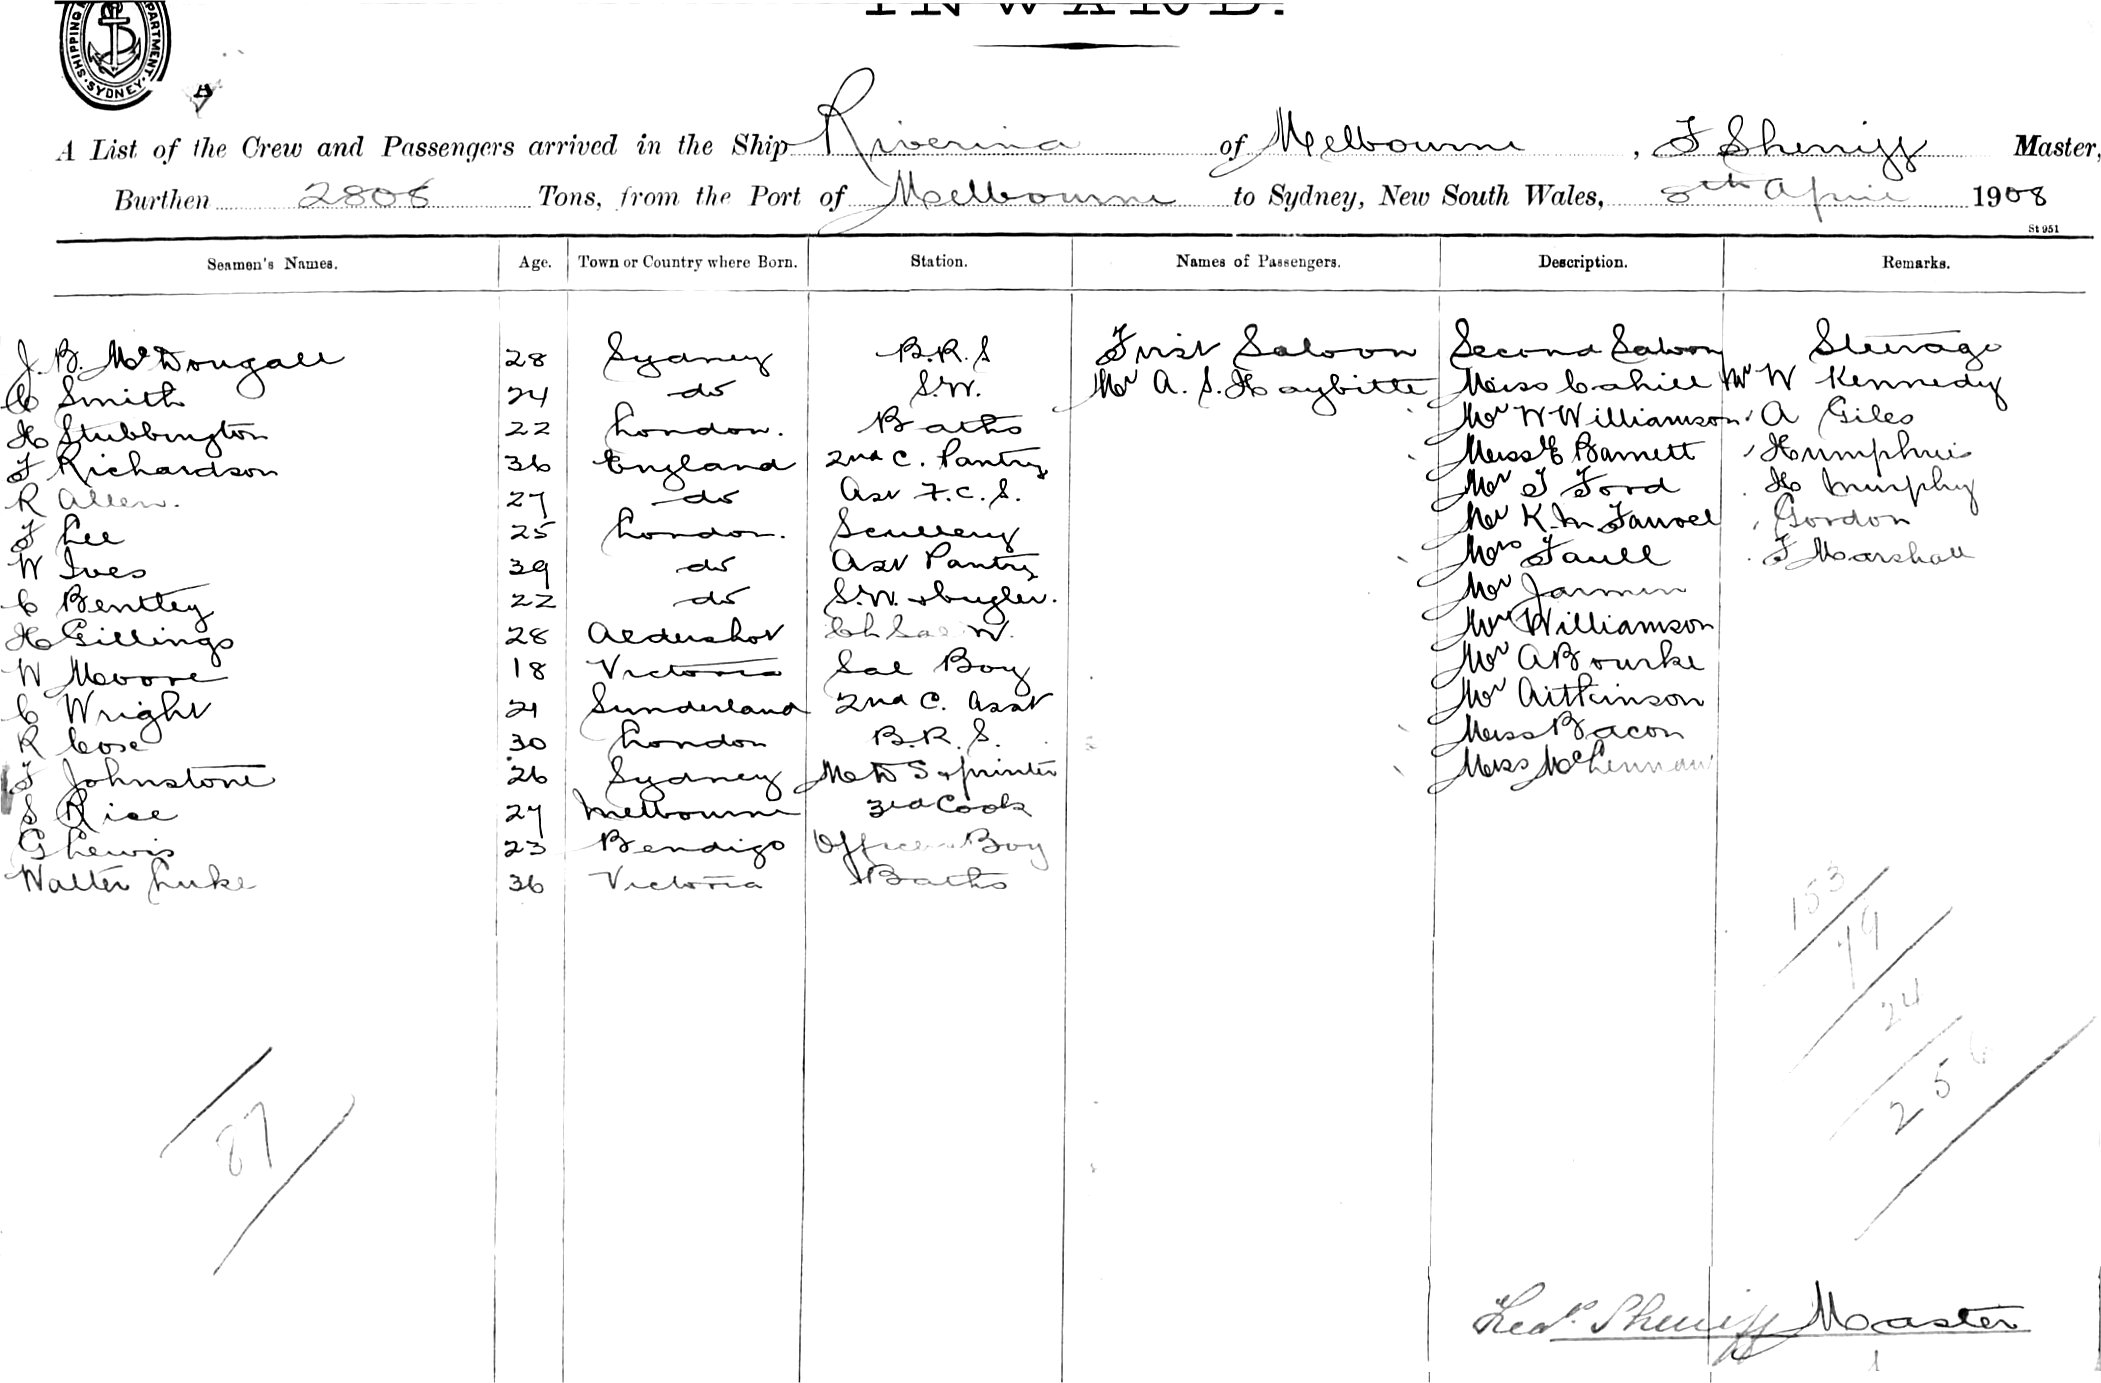 INWARD.
SHIPPING DEPARTMENT SYDNEY
A
A List of the Crew and Passengers arrived in the Ship Riverina of Melbourne, F Sherriff Master,
Burthen 2808 Tons, from the Port of Melbourne to Sydney, New South Wales, 8th April 1908
St 951
Seamen's Names. Age. Town or Country where Born. Station. Names of Passengers. Description. Remarks.
J. B. McDougall 28 Sydney B.R.S First Saloon Second Saloon Steerage
C Smith 24 do S.W. Mr A. S. Haybitte Miss Cahill Mr W Kennedy
H Stubbington 22 London. Baths Mr W Williamson " A Giles
F Richardson 36 England 2nd C. Pantry Miss E Barnett " Humphries
R Allen. 27 do Asst F.C.S. Mr T Ford " H Murphy
F Lee 25 London. Scullery Mr K. M Fauvel " Gordon
W Ives 39 do Asst Pantry Mrs Faull " F Marshall
C Bentley 22 do S.W. & bugler. Mr Jarmin
H Gillings 28 Aldershot Ch Sal W. Mr Williamson
W Moore 18 Victoria Sal Boy Mr A Bourke
C Wright 21 Sunderland 2nd C. Asst Mr Aitkinson
R Cose 30 London B.R.S. Miss Bacon
F Johnstone 26 Sydney M to S & printer Miss McLennan
S Rice 27 Melbourne 3rd Cook
G Lewis 23 Bendigo Officers Boy
Walter Luke 36 Victoria Baths
153
79
24
256
87
Fredk. Sherriff Master
1